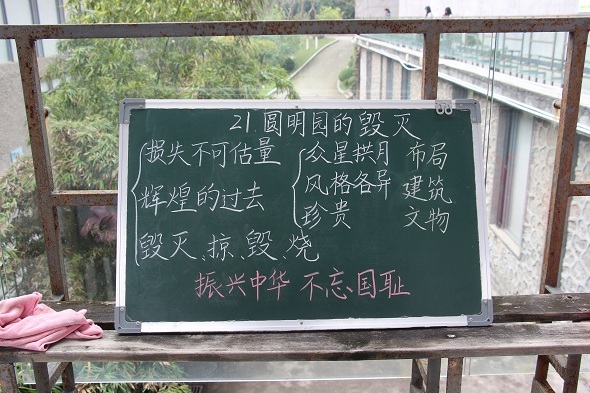 21.圆明园的毁灭
损失不可估量
辉煌的过去
毁灭、掠、毁、烧
众星拱月 布局
风格各异 建筑
珍贵 文物
振兴中华 不忘国耻